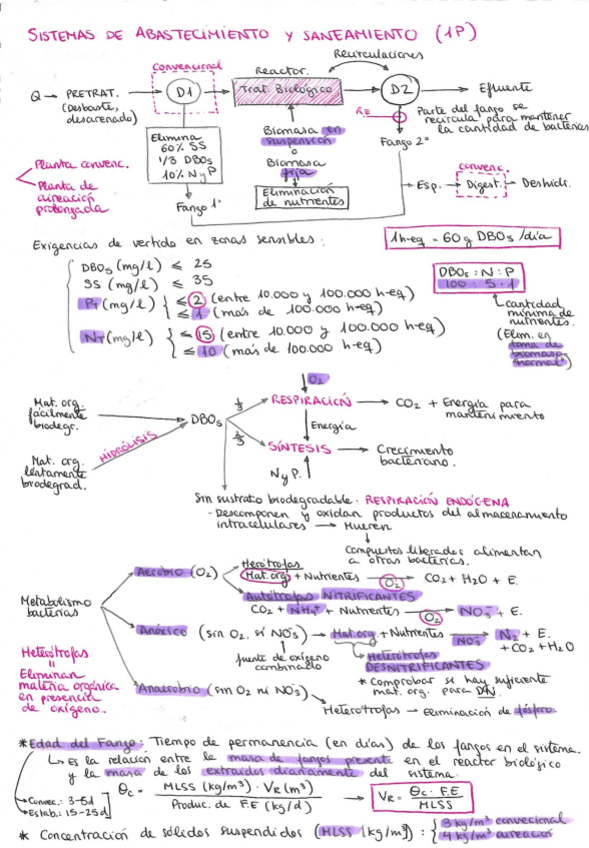 SISTEMAS DE ABASTECIMIENTO Y SANEAMIENTO (1P)
Recirculaciones
Convencional
Reactor.
Q → PRETRAT. → D1 → Trat. Biológico → D2 → Efluente
(Desbaste,
desarenado)
F.E
Parte del fango se
recircula para mantener
la cantidad de bacterias
Elimina
60% SS
1/3 DBO5
10% N y P
Biomasa en
suspensión
o
Biomasa
fija
Eliminación
de nutrientes
Fango 2º
Planta convenc.
Planta de
aireación
prolongada
convenc.
Esp. → Digest. → Deshidr.
Fango 1º
Exigencias de vertido en zonas sensibles:
1h-eq = 60g DBO5/día
DBO5 (mg/l) ≤ 25
SS (mg/l) ≤ 35
PT (mg/l) { ≤ 2 (entre 10.000 y 100.000 h-eq)
≤ 1 (más de 100.000 h-eq)
NT (mg/l) { ≤ 15 (entre 10.000 y 100.000 h-eq)
≤ 10 (más de 100.000 h-eq)
DBO5 : N : P
100 : 5 : 1
cantidad
mínima de
nutrientes.
(Elim. en
toma de
biomasa
"normal")
↓ O2
Mat. org.
fácilmente
biodegr.
1/3 RESPIRACIÓN → CO2 + Energía para
mantenimiento
DBO5
Energía
HIDRÓLISIS
2/3 SÍNTESIS → Crecimiento
bacteriano.
N y P.
Mat. org
lentamente
biodegrad.
Sin sustrato biodegradable: RESPIRACIÓN ENDÓGENA
- Descomponen y oxidan productos del almacenamiento
intracelulares → Mueren
Compuestos liberados alimentan
a otras bacterias.
Metabolismo
bacterias
Aerobio (O2)
Heterótrofas
Mat.org + Nutrientes → O2 CO2 + H2O + E.
Autótrofas NITRIFICANTES
CO2 + NH4+ + Nutrientes → O2 NO3- + E.
Anóxico (sin O2. sí NO3-) → Mat.org. + Nutrientes → NO3- N2 + E.
+ CO2 + H2O
fuente de oxígeno
combinado
Heterótrofas
DESNITRIFICANTES
* Comprobar si hay suficiente
mat. org. para DN
Anaerobio (sin O2 ni NO3-)
Heterótrofas → Eliminación de fósforo
Heterótrofas
=
Eliminan
materia orgánica
en presencia
de oxígeno.
* Edad del Fango: Tiempo de permanencia (en días) de los fangos en el sistema.
↳ Es la relación entre la masa de fangos presente en el reactor biológico
y la masa de los extraídos diariamente del sistema
θc = MLSS (kg/m³) · VR (m³) / Produc. de F.E (kg/d) → VR = θc · F.E / MLSS
Convec.: 3-5d
Estab.: 15-25d
* Concentración de sólidos suspendidos (MLSS (kg/m³)): { 3 kg/m³ convecional
4 kg/m³ aireación